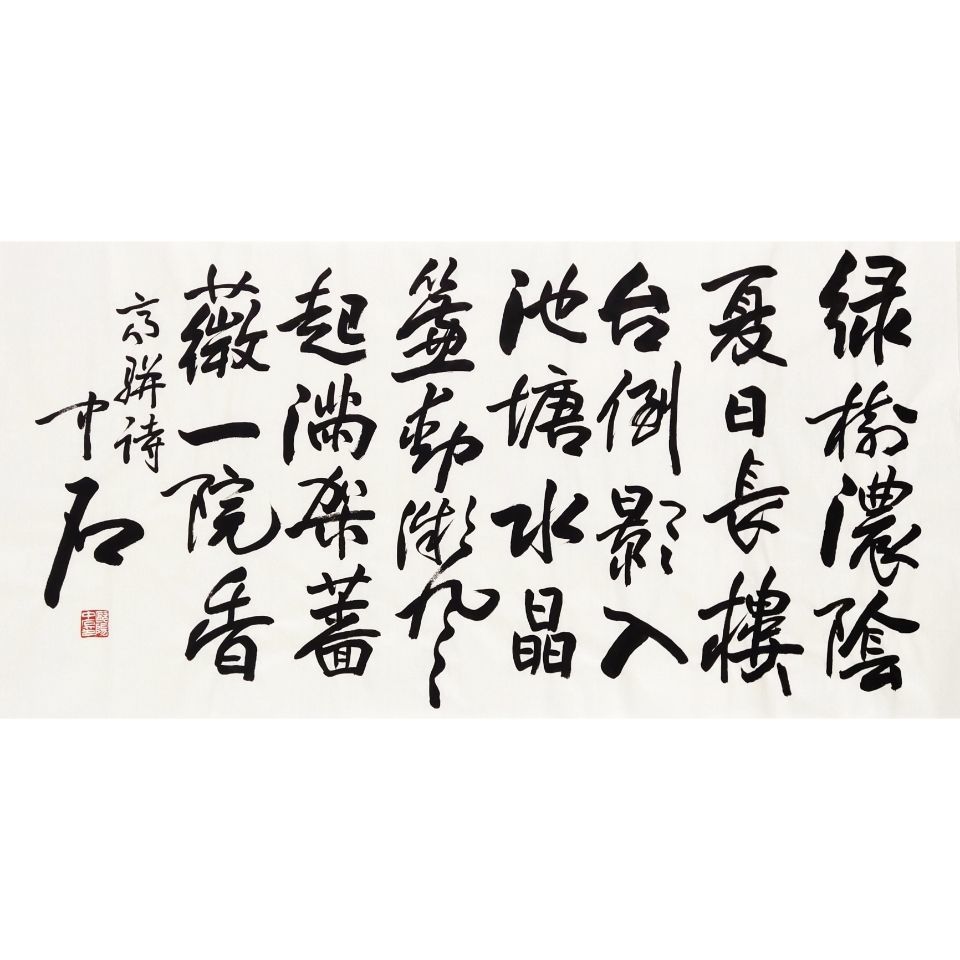 绿樹濃陰
夏日長樓
台倒影入
池塘水晶
簾動微風
起满架薔
薇一院香
高骈诗
中石